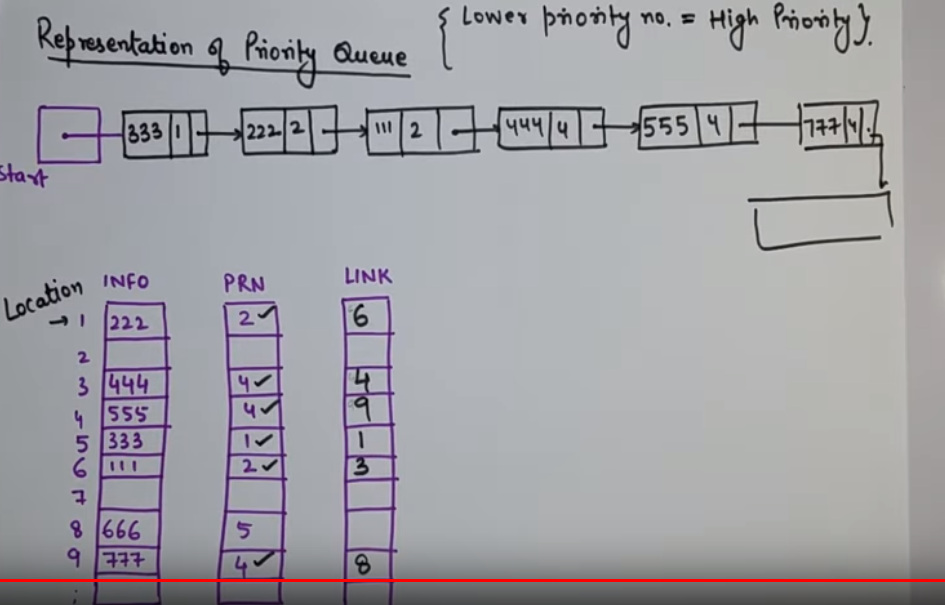 Representation of Priority Queue { Lower priority no. = High Priority }.
333 1 222 2 111 2 444 4 555 4 777 4
Start
Location INFO PRN LINK
→ 1 222 2 ✓ 6
2
3 444 4 ✓ 4
4 555 4 ✓ 9
5 333 1 ✓ 1
6 111 2 ✓ 3
7
8 666 5
9 777 4 ✓ 8
: